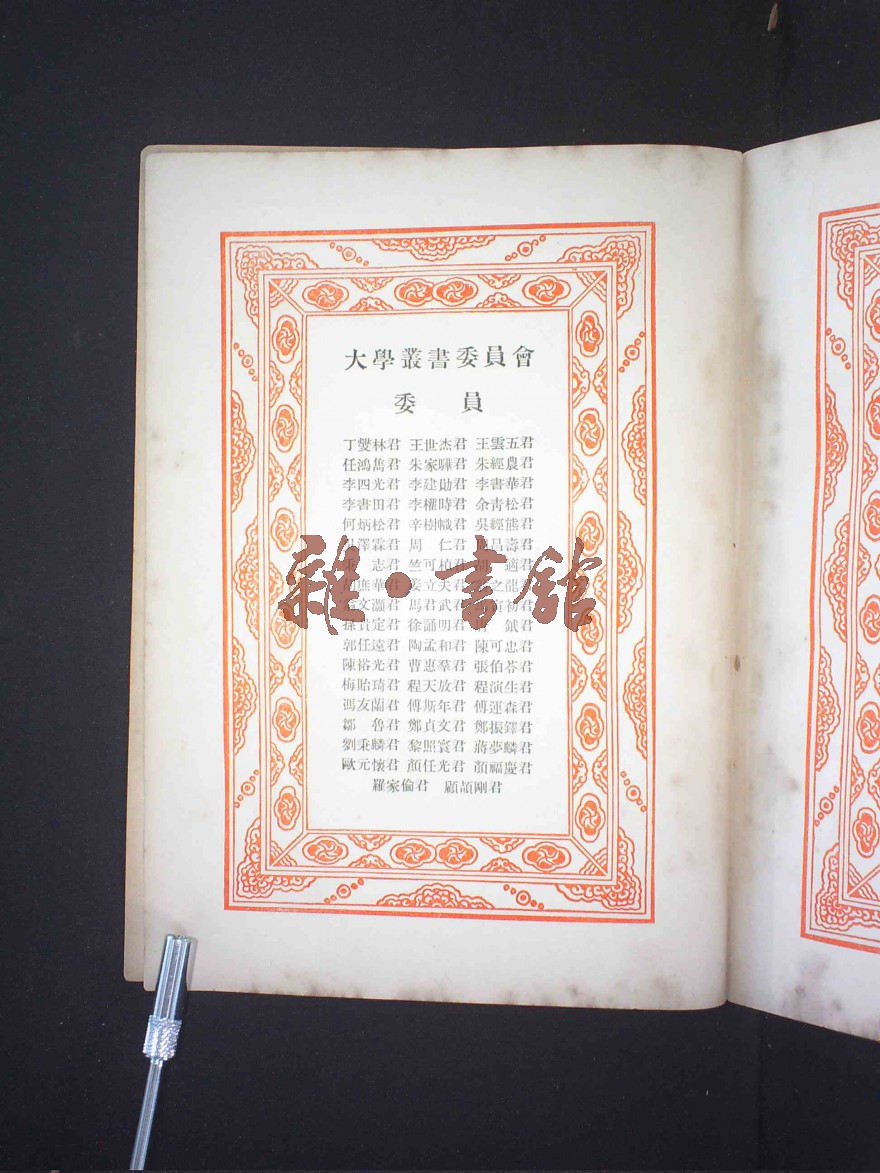 大學叢書委員會
委 員
丁燮林君 王世杰君 王雲五君
任鴻雋君 朱家驊君 朱經農君
李四光君 李建勛君 李書華君
李書田君 李權時君 余青松君
何炳松君 辛樹幟君 吳經熊君
澤霖君 周 仁君 昌壽君
志君 竺可楨君 胡 適君
胡庶華君 姜立夫君 之龍君
文灝君 馬君武君 寅初君
孫貴定君 徐誦明君 鉞君
郭任遠君 陶孟和君 陳可忠君
陳裕光君 曹惠羣君 張伯苓君
梅貽琦君 程天放君 程演生君
馮友蘭君 傅斯年君 傅運森君
鄒 魯君 鄭貞文君 鄭振鐸君
劉秉麟君 黎照寰君 蔣夢麟君
歐元懷君 顏任光君 顏福慶君
羅家倫君 顧頡剛君
雜·書館